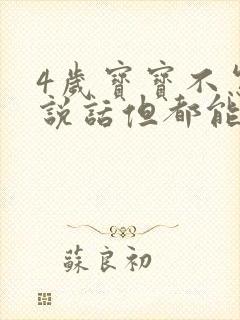 4歲寶寶不
說話但都能
蘇良初